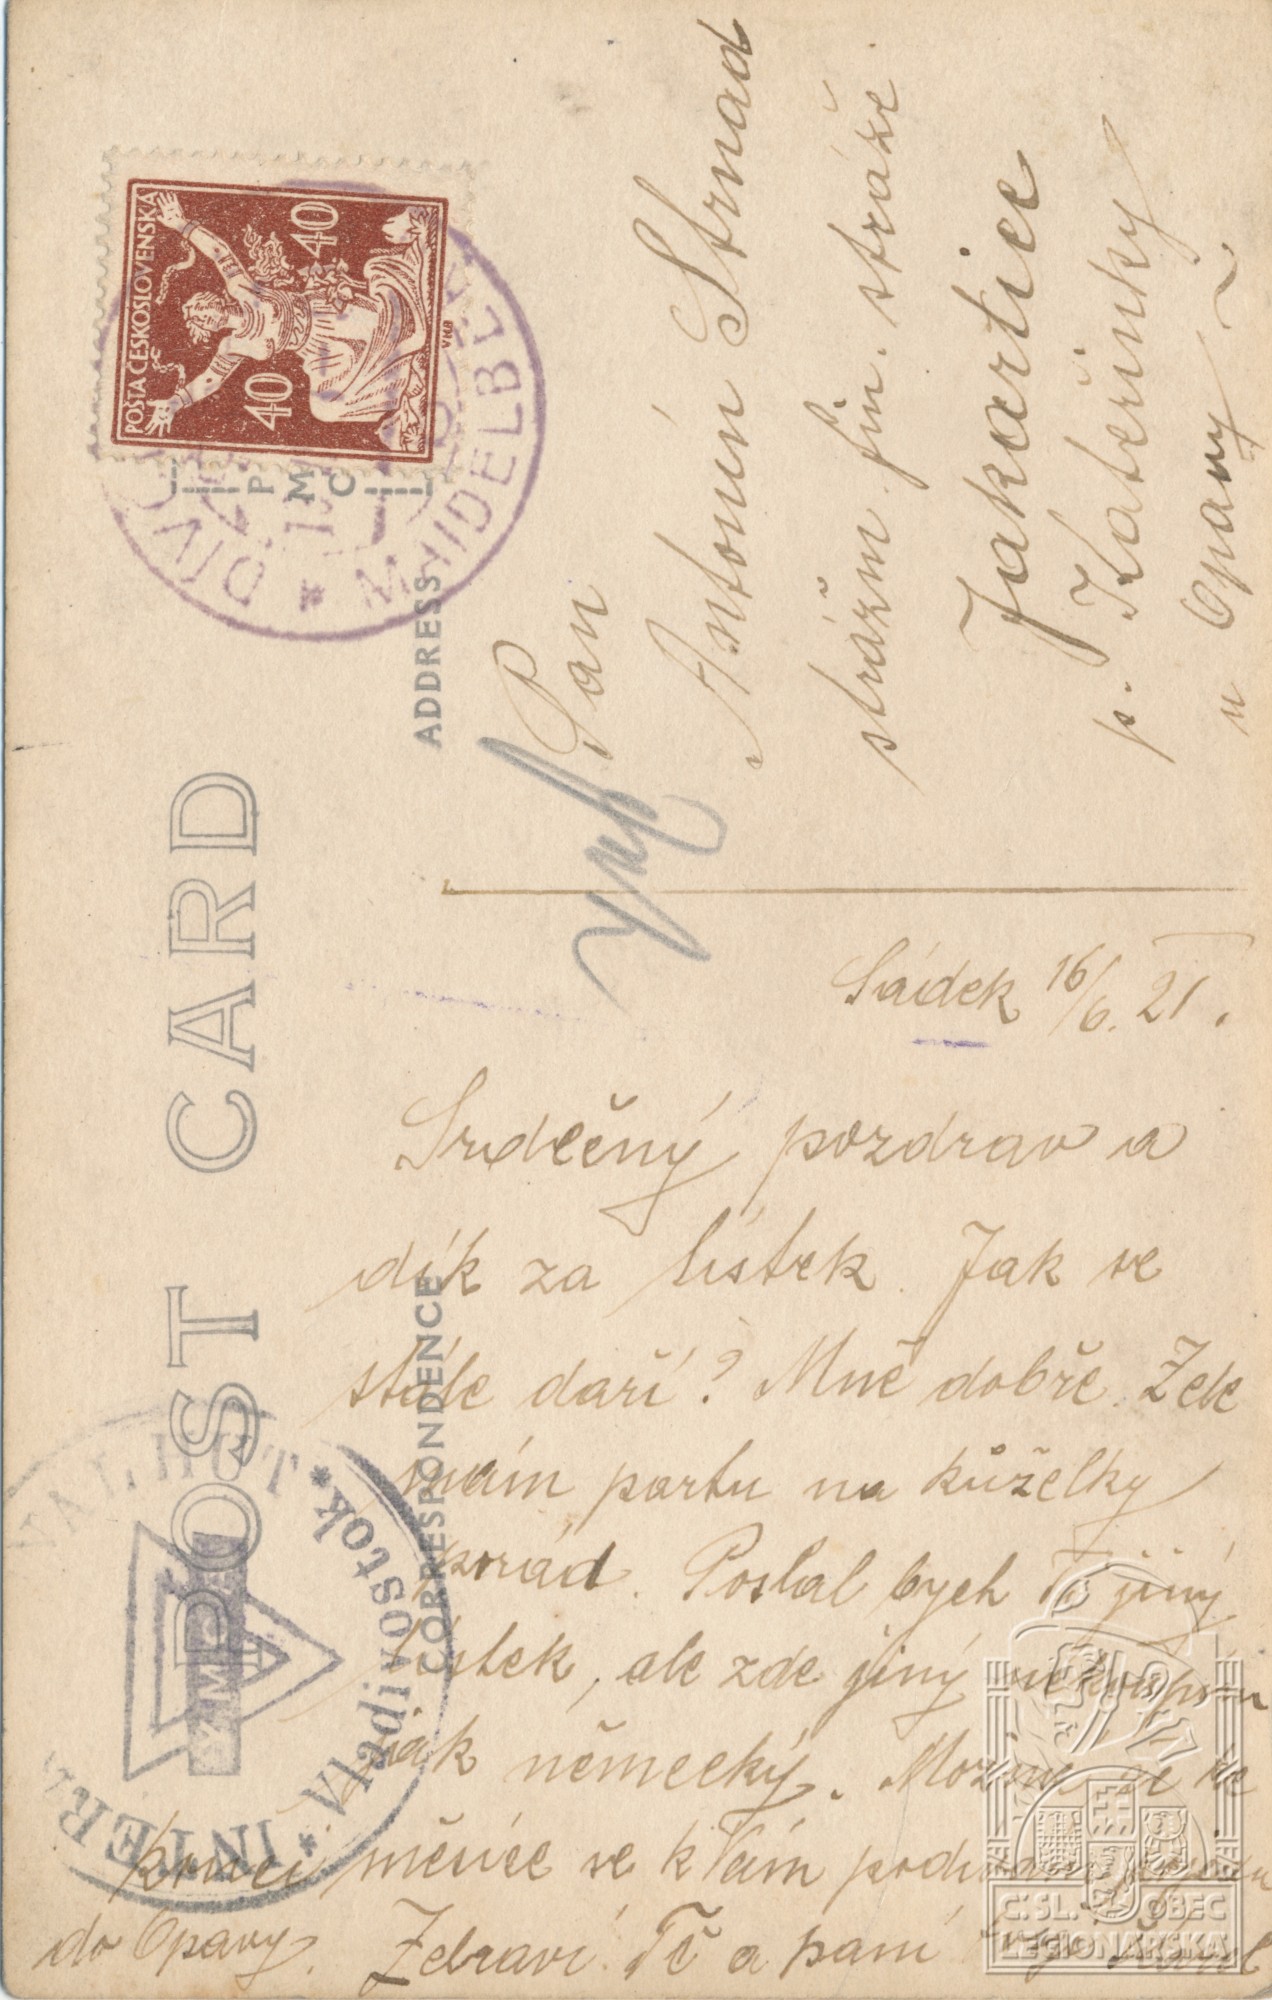 POST CARD
CORRESPONDENCE
ADDRESS
P
M
C
POŠTA ČESKOSLOVENSKÁ
40
40
VHB
MAIDELBERG
INTER
* Vladivostok *
Pan
Antonín Strnad
strážm. fin. stráže
Jakartice
p. Kateřinky
u Opavy
Sádek 16/6. 21.
Srdečný pozdrav a
dík za lístek. Jak se
stále daří? Mně dobře. Zde
mám partu na kůželky
pořád. Poslal bych Ti jiný
lístek, ale zde jiný
jak německý. Možná že ke
konci měsíce se k Vám podívám
do Opavy. Zdraví Tě a paní Tvůj Karel
Č. SL. OBEC
LEGIONÁŘSKÁ